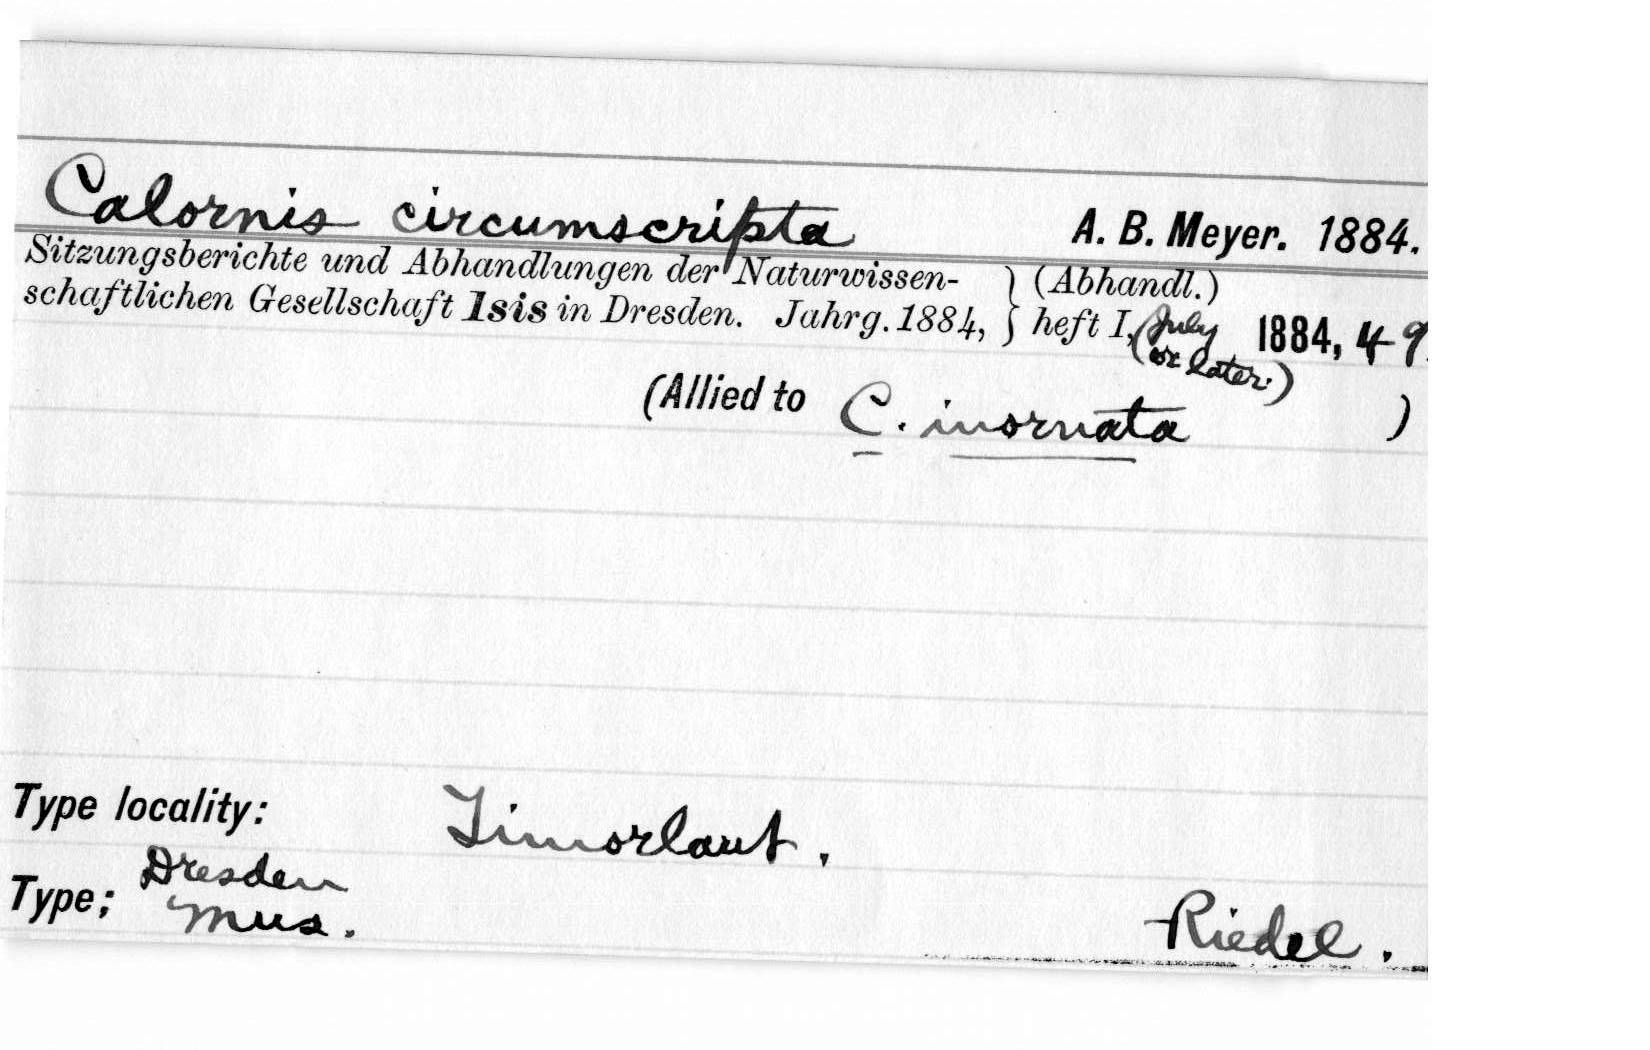 Calornis circumscripta A. B. Meyer. 1884.
Sitzungsberichte und Abhandlungen der Naturwissen- } (Abhandl.)
schaftlichen Gesellschaft Isis in Dresden. Jahrg. 1884, } heft I, (July 1884, 49.
or later.)
(Allied to C. inornata )
Type locality: Timorlaut.
Type; Dresden
Mus. Riedel.